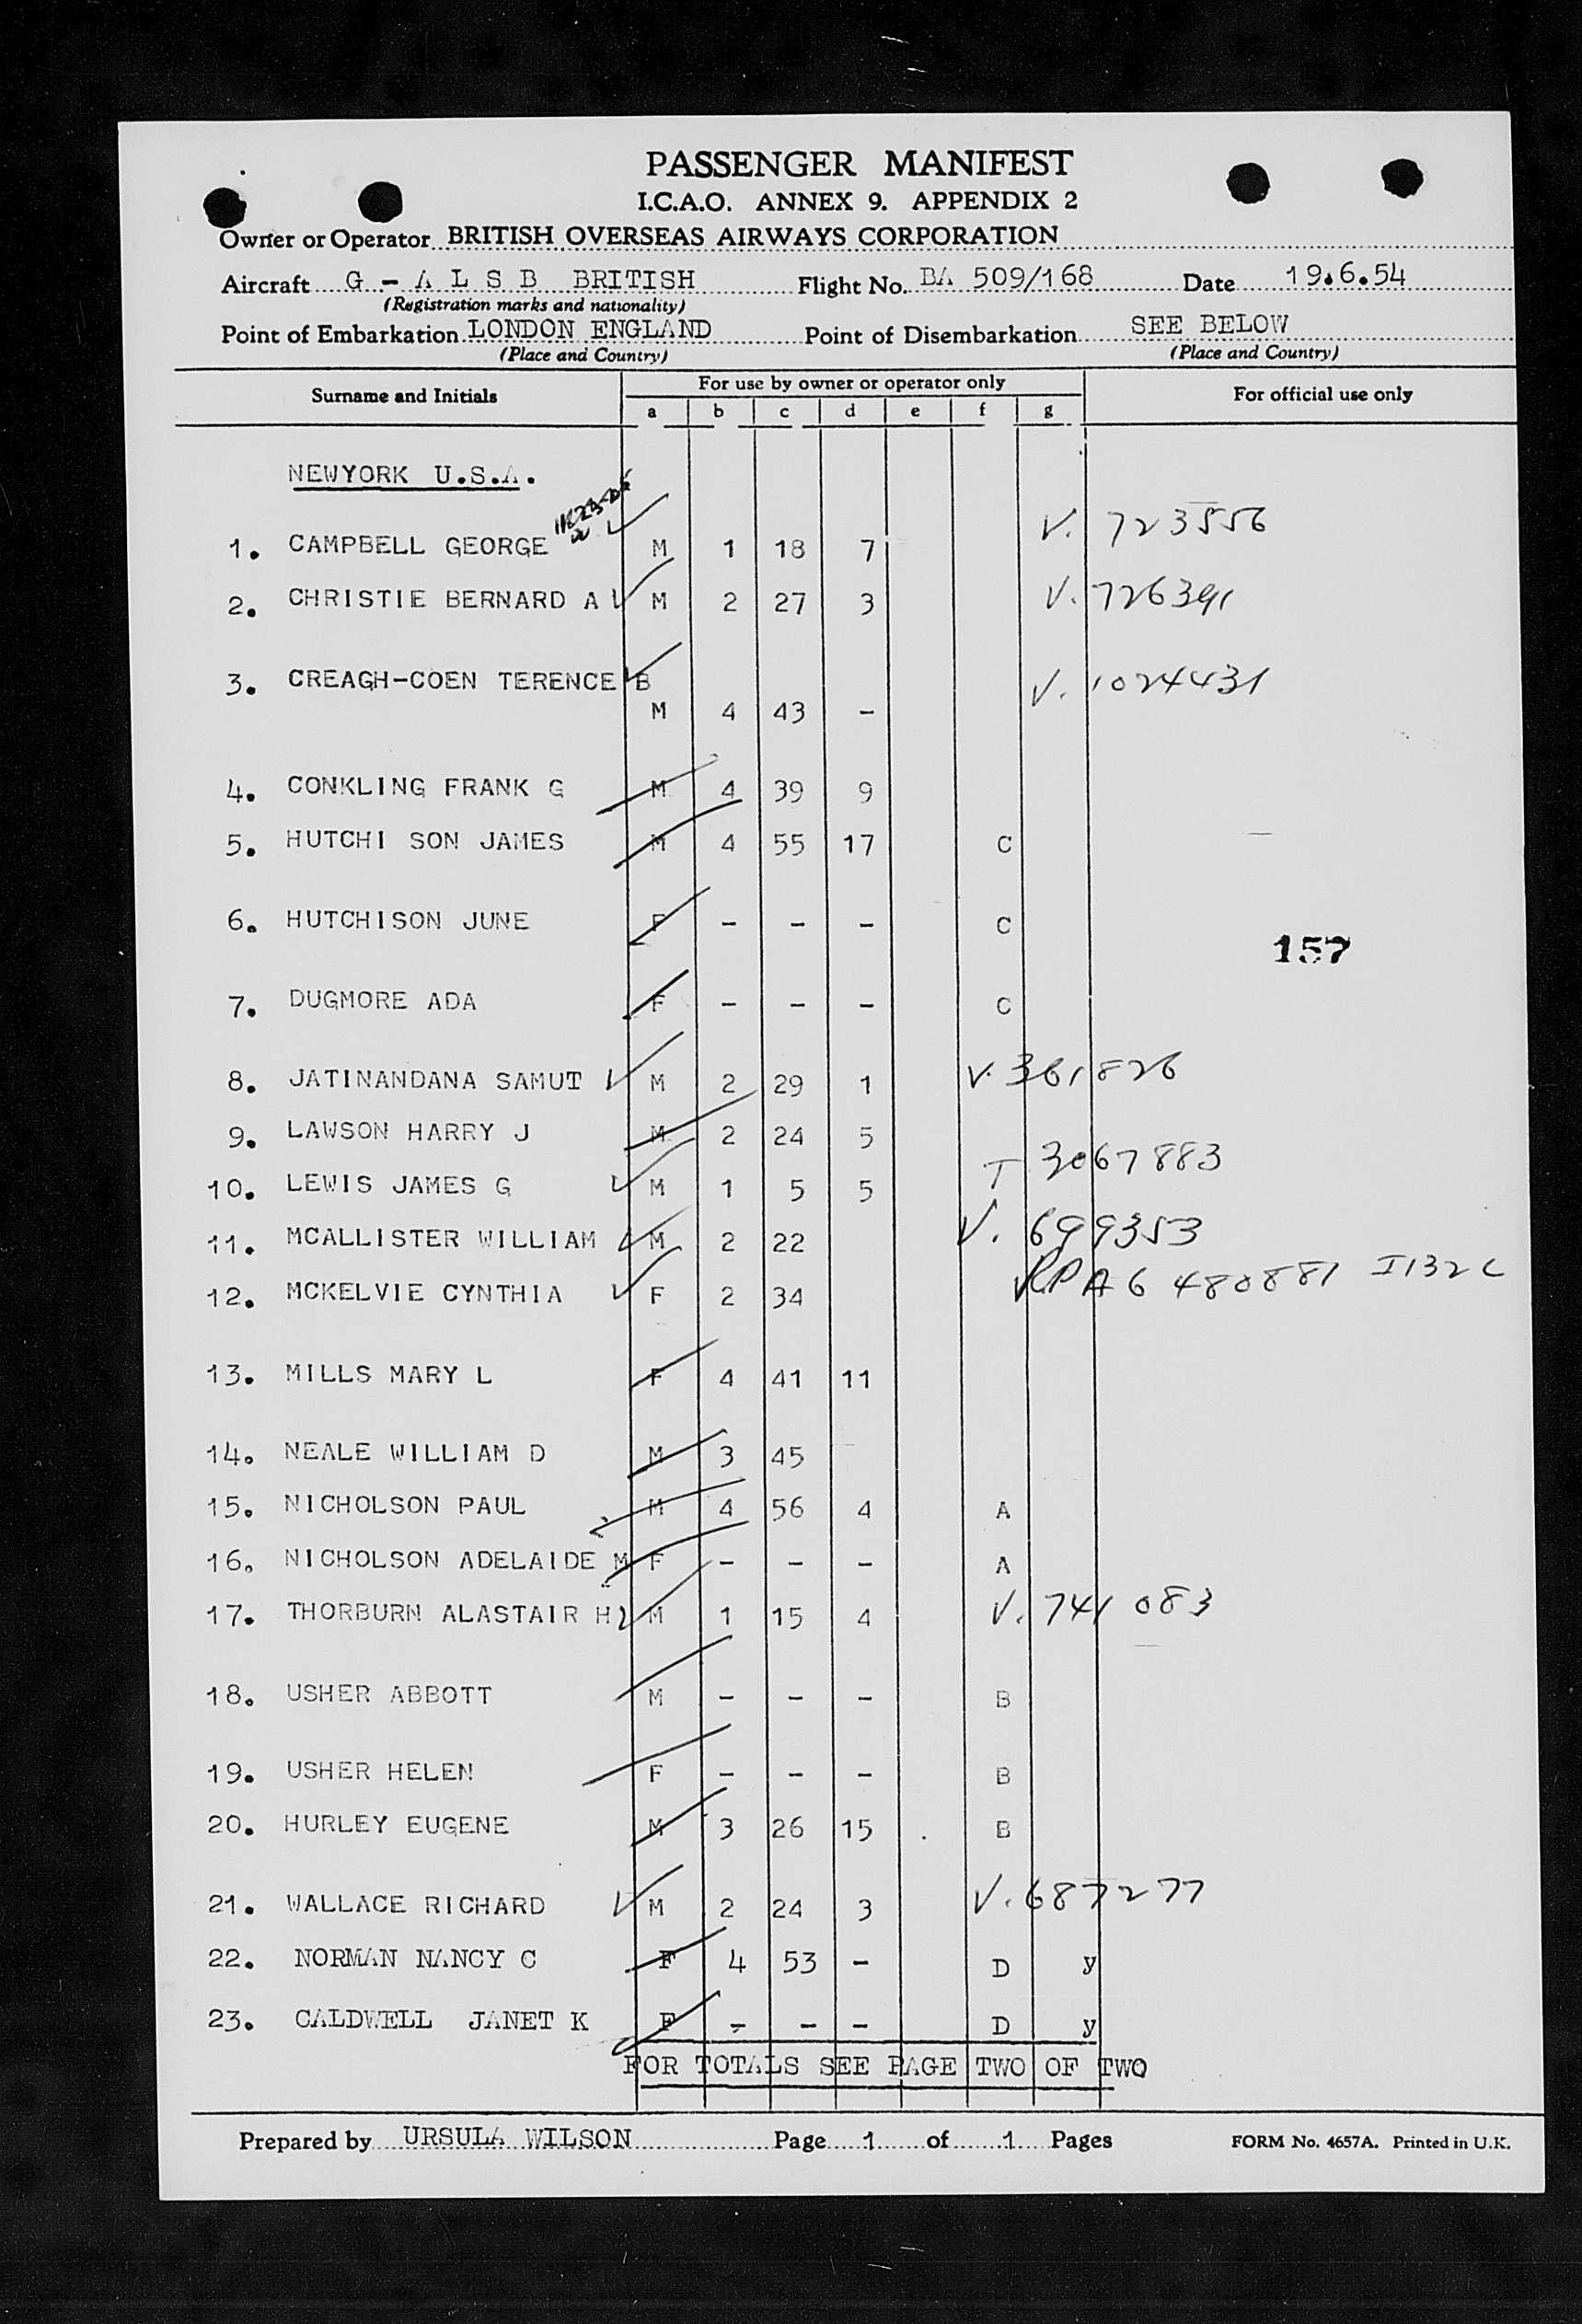 PASSENGER MANIFEST
I.C.A.O. ANNEX 9. APPENDIX 2
Owner or Operator BRITISH OVERSEAS AIRWAYS CORPORATION
Aircraft G - A L S B BRITISH Flight No. BA 509/168 Date 19.6.54
(Registration marks and nationality)
Point of Embarkation LONDON ENGLAND Point of Disembarkation SEE BELOW
(Place and Country) (Place and Country)
Surname and Initials For use by owner or operator only For official use only
a b c d e f g
NEWYORK U.S.A.
1. CAMPBELL GEORGE M 1 18 7 V. 723556
2. CHRISTIE BERNARD A M 2 27 3 V. 726391
3. CREAGH-COEN TERENCE B V. 1024431
M 4 43 -
4. CONKLING FRANK G M 4 39 9
5. HUTCHI SON JAMES M 4 55 17 C
6. HUTCHISON JUNE F - - - C
157
7. DUGMORE ADA F - - - C
8. JATINANDANA SAMUT M 2 29 1 V. 361826
9. LAWSON HARRY J M 2 24 5
10. LEWIS JAMES G M 1 5 5 T 3067883
11. MCALLISTER WILLIAM M 2 22 V. 699353
12. MCKELVIE CYNTHIA F 2 34 RP A6 480881 I132C
13. MILLS MARY L F 4 41 11
14. NEALE WILLIAM D M 3 45
15. NICHOLSON PAUL M 4 56 4 A
16. NICHOLSON ADELAIDE M F - - - A
17. THORBURN ALASTAIR H M 1 15 4 V. 741083
18. USHER ABBOTT M - - - B
19. USHER HELEN F - - - B
20. HURLEY EUGENE M 3 26 15 B
21. WALLACE RICHARD M 2 24 3 V. 687277
22. NORMAN NANCY C F 4 53 - D y
23. CALDWELL JANET K F - - - D y
FOR TOTALS SEE PAGE TWO OF TWO
Prepared by URSULA WILSON Page 1 of 1 Pages FORM No. 4657A. Printed in U.K.